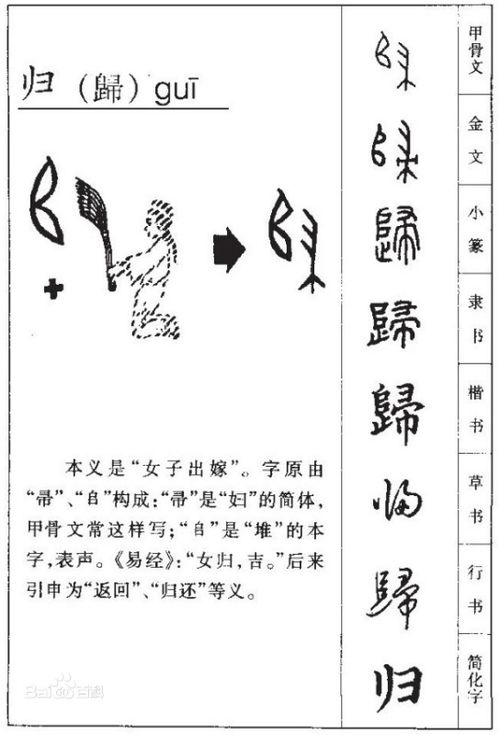 归（歸）guī
本义是“女子出嫁”。字原由
“帚”、“𠂤”构成：“帚”是“妇”的简体，
甲骨文常这样写；“𠂤”是“堆”的本
字，表声。《易经》：“女归，吉。”后来
引申为“返回”、“归还”等义。
Bai百科
甲骨文
金文
小篆
歸
隶书
歸
楷书
歸
草书
行书
歸
简化字
归